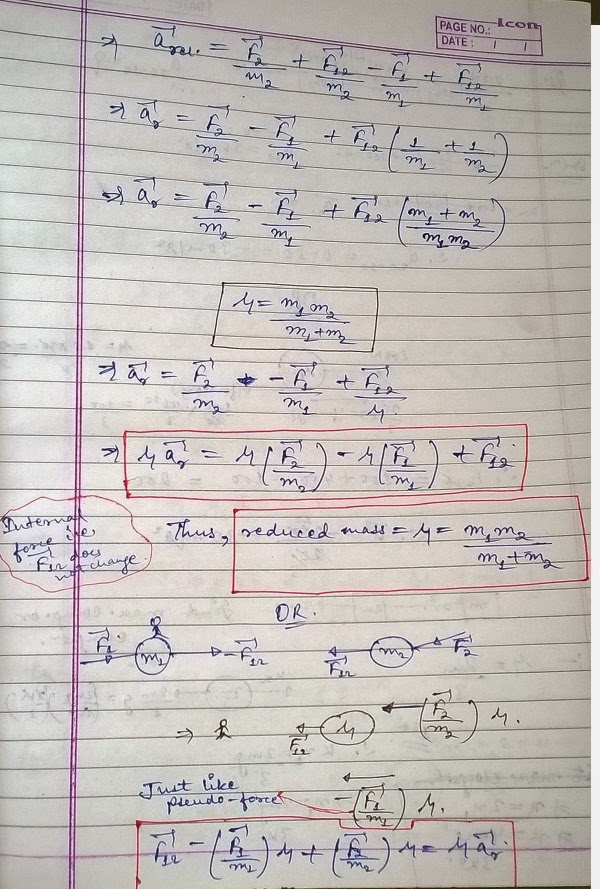 Icon
PAGE NO.:
DATE : / /
⇒ a⃗rel. = F⃗2/m2 + F⃗12/m2 - F⃗1/m1 + F⃗12/m1
⇒ a⃗r = F⃗2/m2 - F⃗1/m1 + F⃗12 (1/m1 + 1/m2)
⇒ a⃗r = F⃗2/m2 - F⃗1/m1 + F⃗12 ((m1 + m2)/(m1m2))
μ = m1m2/(m1+m2)
⇒ a⃗r = F⃗2/m2 - F⃗1/m1 + F⃗12/μ
⇒ μa⃗r = μ(F⃗2/m2) - μ(F⃗1/m1) + F⃗12
Internal
force i.e.,
F⃗12 does
not change
Thus, reduced mass = μ = m1m2/(m1+m2)
OR.
F⃗1 m1 -F⃗12 F⃗12 m2 F⃗2
⇒ F⃗12 μ (F⃗2/m2) μ.
Just like
pseudo-force
-(F⃗1/m1) μ.
F⃗12 - (F⃗1/m1) μ + (F⃗2/m2) μ = μa⃗r